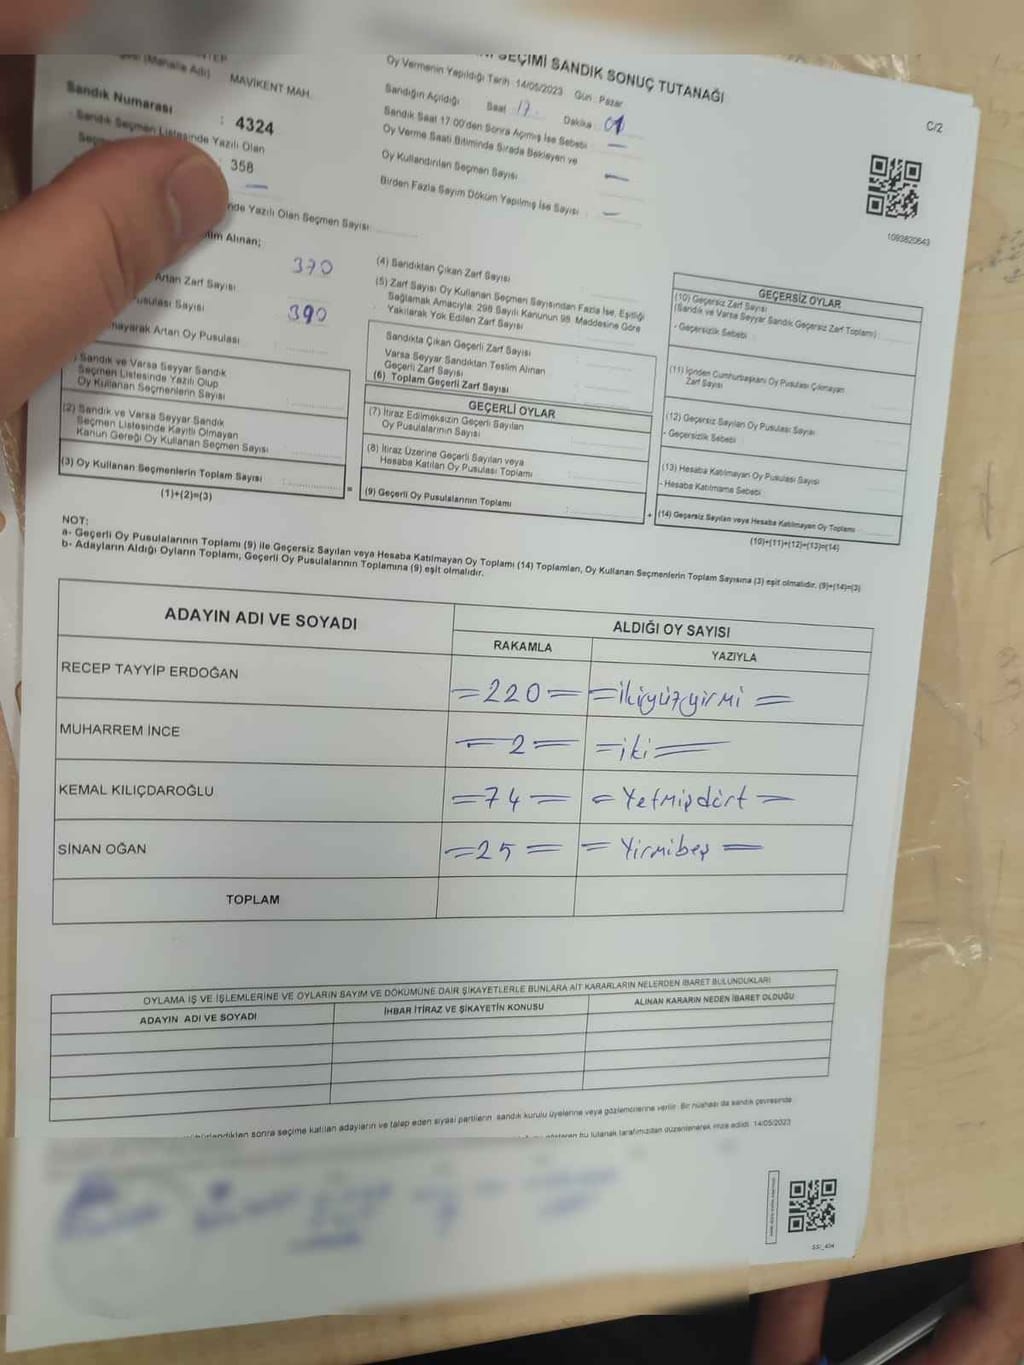 SEÇİMİ SANDIK SONUÇ TUTANAĞI
(Mahalle Adı) MAVİKENT MAH.
Sandık Numarası : 4324
Sandık Seçmen Listesinde Yazılı Olan
: 358
Yazılı Olan Seçmen Sayısı
Alınan;
370
Artan Zarf Sayısı
Sayısı 390
Artan Oy Pusulası
Oy Vermenin Yapıldığı Tarih : 14/05/2023 Gün : Pazar
Sandığın Açıldığı Saat 17. Dakika 01
Sandık Saat 17:00'den Sonra Açılmış İse Sebebi : —
Oy Verme Saati Bitiminde Sırada Bekleyen ve
Oy Kullandırılan Seçmen Sayısı : —
Birden Fazla Sayım Döküm Yapılmış İse Sayısı : —
C/2
1093820643
(4) Sandıktan Çıkan Zarf Sayısı
(5) Zarf Sayısı Oy Kullanan Seçmen Sayısından Fazla İse, Eşitliği
Sağlamak Amacıyla, 298 Sayılı Kanunun 98. Maddesine Göre
Yakılarak Yok Edilen Zarf Sayısı
Sandık ve Varsa Seyyar Sandık
Seçmen Listesinde Yazılı Olup
Oy Kullanan Seçmenlerin Sayısı
(2) Sandık ve Varsa Seyyar Sandık
Seçmen Listesinde Kayıtlı Olmayan
Kanun Gereği Oy Kullanan Seçmen Sayısı
(3) Oy Kullanan Seçmenlerin Toplam Sayısı
(1)+(2)=(3)
=
Sandıkta Çıkan Geçerli Zarf Sayısı
Varsa Seyyar Sandıktan Teslim Alınan
Geçerli Zarf Sayısı
(6) Toplam Geçerli Zarf Sayısı
GEÇERLİ OYLAR
(7) İtiraz Edilmeksizin Geçerli Sayılan
Oy Pusulalarının Sayısı
(8) İtiraz Üzerine Geçerli Sayılan veya
Hesaba Katılan Oy Pusulası Toplamı
(9) Geçerli Oy Pusulalarının Toplamı
+
GEÇERSİZ OYLAR
(10) Geçersiz Zarf Sayısı
(Sandık ve Varsa Seyyar Sandık Geçersiz Zarf Toplamı)
- Geçersizlik Sebebi
(11) İçinden Cumhurbaşkanı Oy Pusulası Çıkmayan
Zarf Sayısı
(12) Geçersiz Sayılan Oy Pusulası Sayısı
- Geçersizlik Sebebi
(13) Hesaba Katılmayan Oy Pusulası Sayısı
- Hesaba Katılmama Sebebi
(14) Geçersiz Sayılan veya Hesaba Katılmayan Oy Toplamı
(10)+(11)+(12)+(13)=(14)
NOT:
a- Geçerli Oy Pusulalarının Toplamı (9) ile Geçersiz Sayılan veya Hesaba Katılmayan Oy Toplamı (14) Toplamları, Oy Kullanan Seçmenlerin Toplam Sayısına (3) eşit olmalıdır. (9)+(14)=(3)
b- Adayların Aldığı Oyların Toplamı, Geçerli Oy Pusulalarının Toplamına (9) eşit olmalıdır.
ADAYIN ADI VE SOYADI ALDIĞI OY SAYISI
RAKAMLA YAZIYLA
RECEP TAYYİP ERDOĞAN =220= =ikiyüzyirmi=
MUHARREM İNCE =2= =iki=
KEMAL KILIÇDAROĞLU =74= =Yetmişdört=
SİNAN OĞAN =25= =Yirmibeş=
TOPLAM
OYLAMA İŞ VE İŞLEMLERİNE VE OYLARIN SAYIM VE DÖKÜMÜNE DAİR ŞİKAYETLERLE BUNLARA AİT KARARLARIN NELERDEN İBARET BULUNDUKLARI
ADAYIN ADI VE SOYADI İHBAR İTİRAZ VE ŞİKAYETİN KONUSU ALINAN KARARIN NEDEN İBARET OLDUĞU
sonra seçime katılan adayların ve talep eden siyasi partilerin sandık kurulu üyelerine veya gözlemcilerine verilir. Bir nüshası da sandık çevresinde
bu tutanak tarafımızdan düzenlenerek imza edildi. 14/05/2023